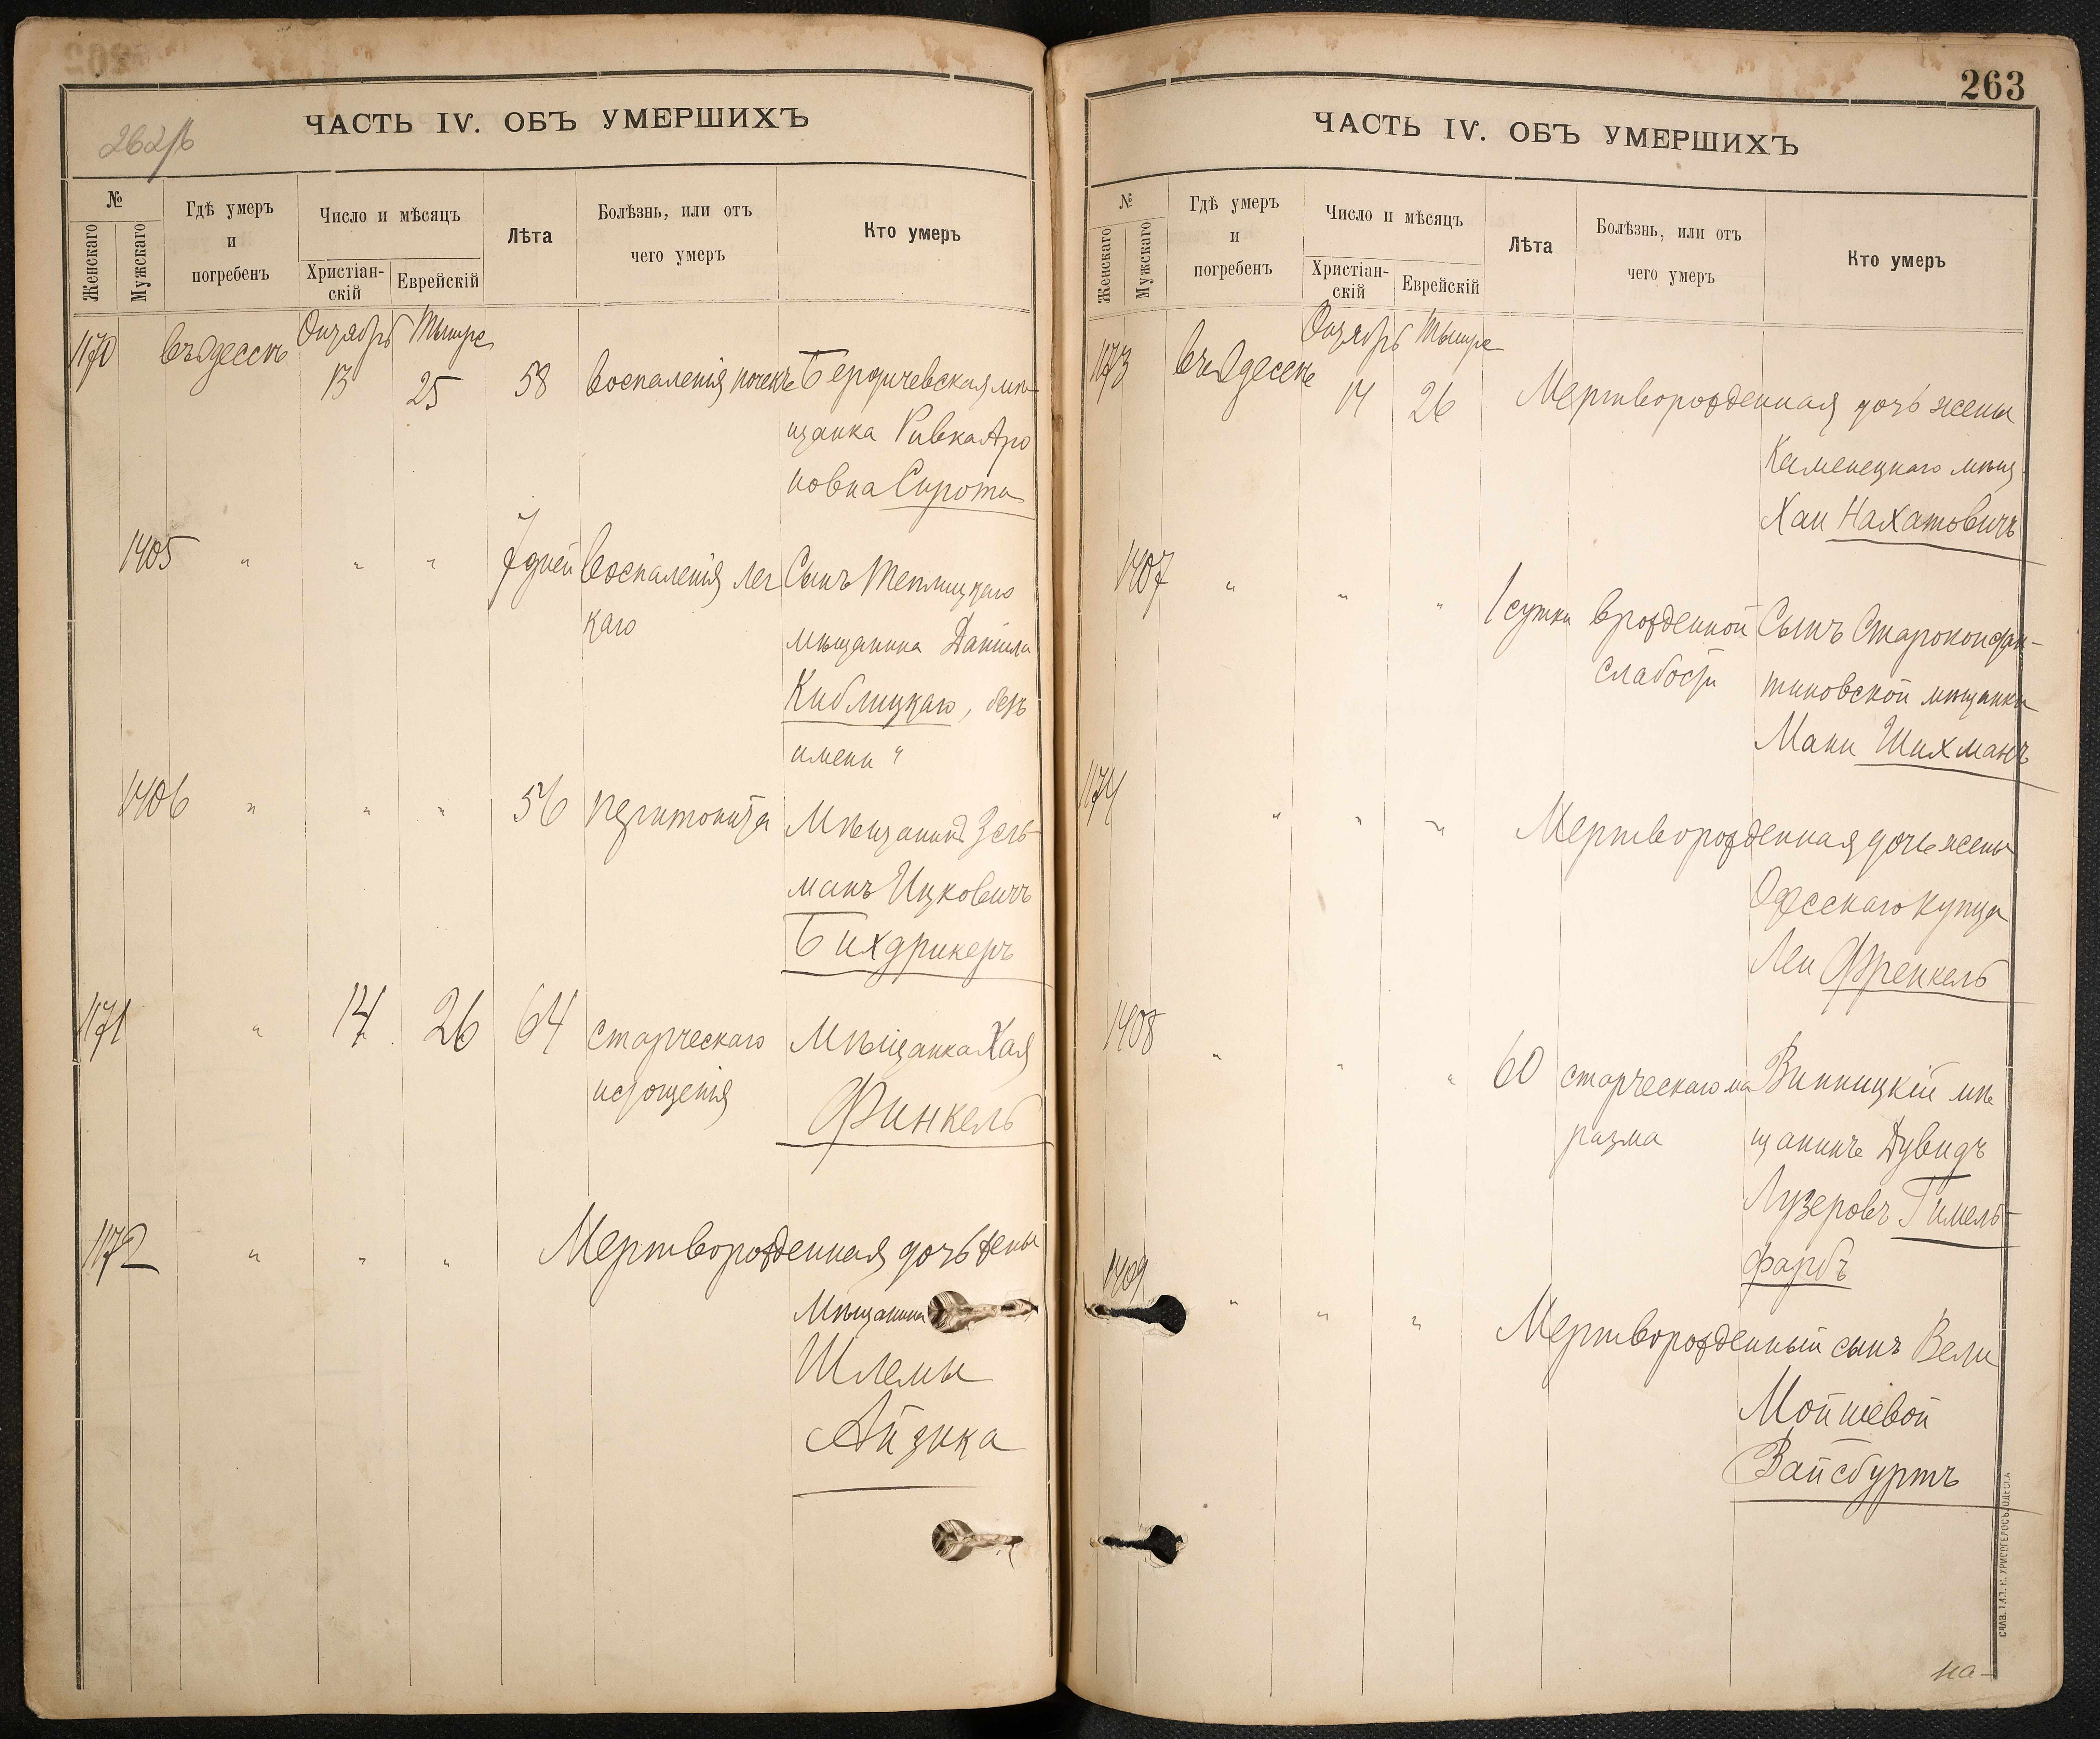 262/б
ЧАСТЬ IV. ОБЪ УМЕРШИХЪ
№
Женскаго
Мужскаго
Гдѣ умеръ
и
погребенъ
Число и мѣсяцъ
Христіан-
скій
Еврейскій
Лѣта
Болѣзнь, или отъ
чего умеръ
Кто умеръ
1170 въ Одессѣ Октябрь Тишре
13 25 58 воспаленія почекъ Бердичевская мѣ
щанка Ривка Аро
новна Сирота
1405 " " " 7 дней воспаленія лег Сынъ Теплицкаго
каго мѣщанина Даніила
Киблицкаго, безъ
имени "
1406 " " " 56 перитонита Мѣщанинъ Зель-
манъ Ицковичъ
Бихдрикеръ
1171 " 14 26 64 старческаго Мѣщанка Хая
истощенія Финкель
1172 " " " Мертворожденная дочь жены
Мѣщанина
Шлемы
Айзика
263
ЧАСТЬ IV. ОБЪ УМЕРШИХЪ
№
Женскаго
Мужскаго
Гдѣ умеръ
и
погребенъ
Число и мѣсяцъ
Христіан-
скій
Еврейскій
Лѣта
Болѣзнь, или отъ
чего умеръ
Кто умеръ
1173 въ Одессѣ Октябрь Тишре
14 26 Мертворожденная дочь жены
Каменецкаго мѣщ.
Хаи Нахатовичъ
1407 " " " 1 сутки врожденной Сынъ Староконстан-
слабости тиновской мѣщанки
Мани Шихманъ
1174 " " " Мертворожденная дочь жены
Одесскаго купца
Леи Френкель
1408 " " " 60 старческаго ма Винницкій мѣ
разма щанинъ Дувидъ
Лузеровъ Гимель-
фарбъ
1409 " " " Мертворожденный сынъ Вели
Мойшевой
Вайсбуртъ
на-